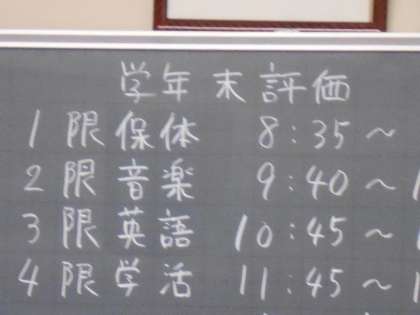 学年末評価
1限保体 8:35～
2限音楽 9:40～1
3限英語 10:45～1
4限学活 11:45～1